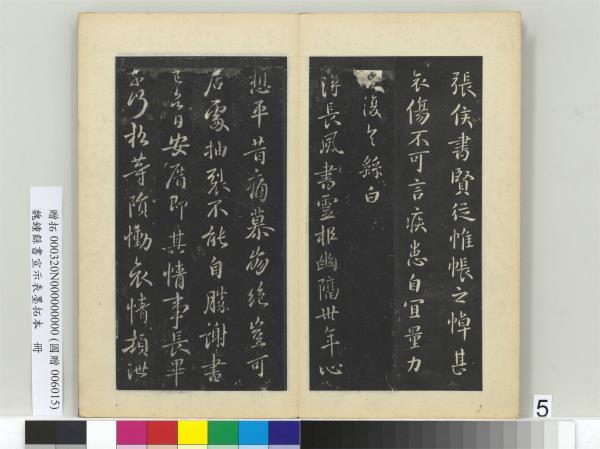 張侯書賢從帷帳之悼甚
哀傷不可言疾患自宜量力
復繇白
得長風書靈柩幽隔卅年心
想平昔痛慕崩絕豈可
居處抽裂不能自勝謝書
日安厝即其情事長畢
松等隕慟哀情頓泄
贈拓 000320N000000000 (國贈 006015)
魏鍾繇書宣示表墨拓本 冊
5